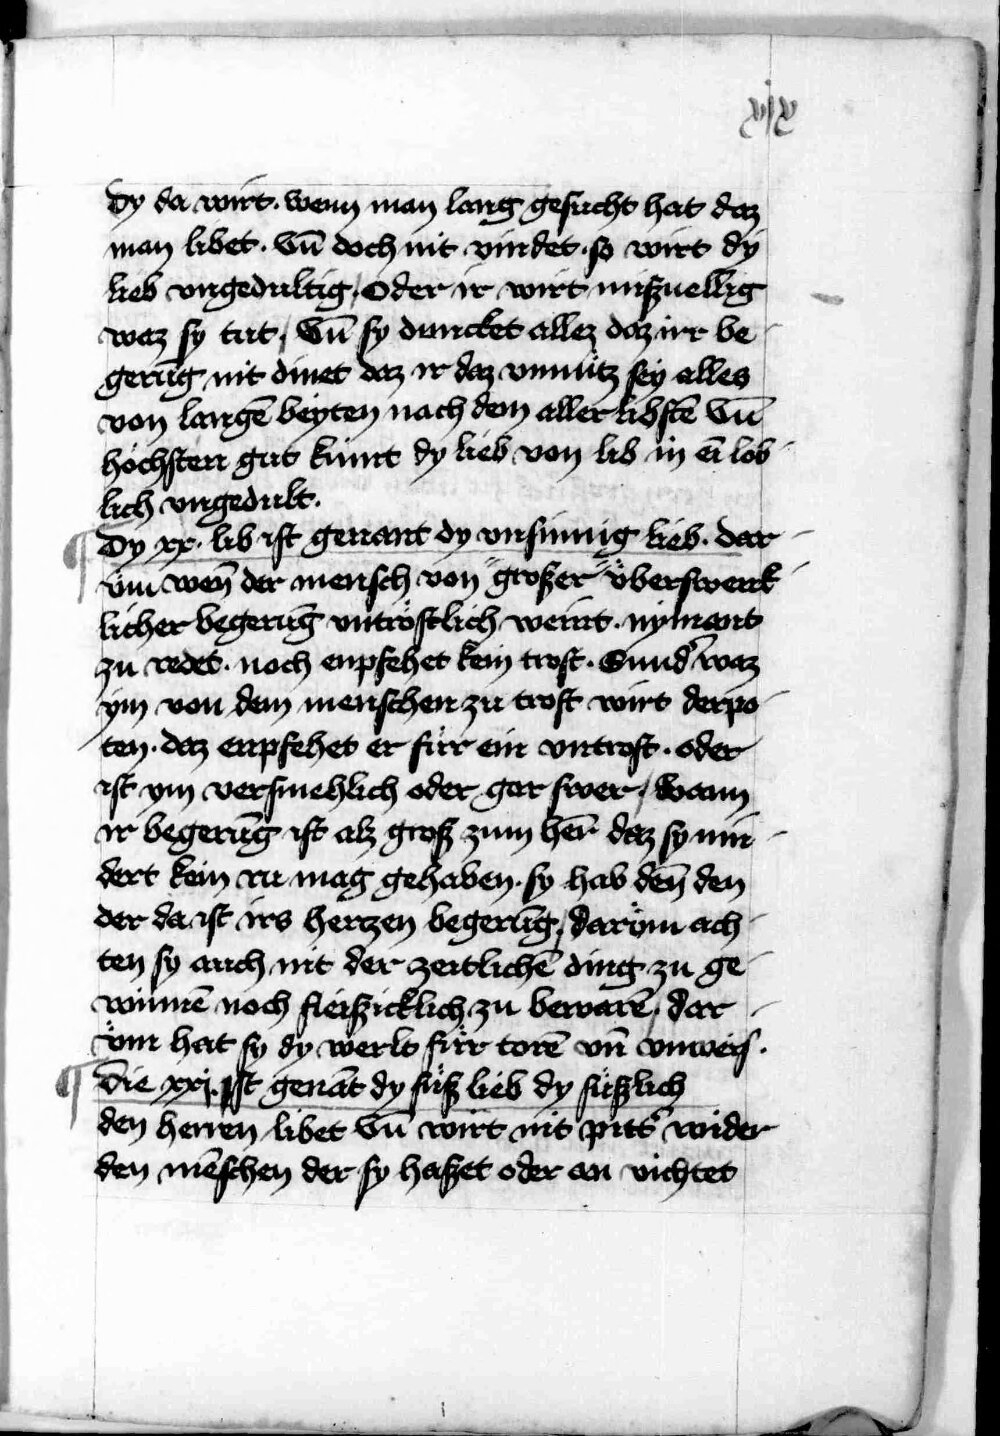 xix
Dy da wirt. wenn man lang gesucht hat daz
man libet. Vn̄ doch nit vindet. so wirt dy
lieb vngedultig / Oder ir wirt mißuellig
waz sy tut / Vn̄ sy duncket allez daz irr be
gerūg nit dinet daz ir daz vnnutz sey alles
von langē beyten nach dem aller libstē Vn̄
hochsten gut kumt dy lieb von lib in ei̅ lob
lich vngedult.
Dy xx. lib ist genant dy vnsinnig lieb. dar
vm wen̄ der mensch von großer v̈berswenk
licher begerūg vntröstlich weint. nymant
zu redet. noch enpfehet kein trost. Sund' waz
ym von dem menschen zu trost wirt derpo
ten. daz enpfehet er fürr ein vntrost. oder
ist ym versmehlich oder gar swer / Wann
ir begerūg ist alz groß zum her̄ daz sy nin
dert kein ru mag gehaben. sy hab den̄ den
der da ist irs hertzen begerūg / dar̈vm ach
ten sy auch nit der zeitlichē ding zu ge
winnē noch fleißicklich zu bewarē / dar
v̈m hat sy dy werlt fürr torē vn̄ vnweis.
Die xxj. ist genāt dy süß lieb dy süßlich
den herren libet Vn̄ wirt nit pitt' wider
den mēschen der sy haßet oder an vichtet